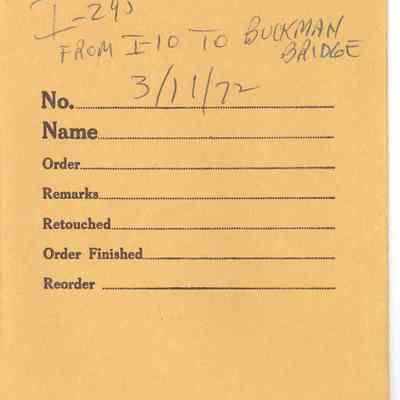 I-295
FROM I-10 TO BUCKMAN
BRIDGE
3/11/72
No.
Name
Order
Remarks
Retouched
Order Finished
Reorder